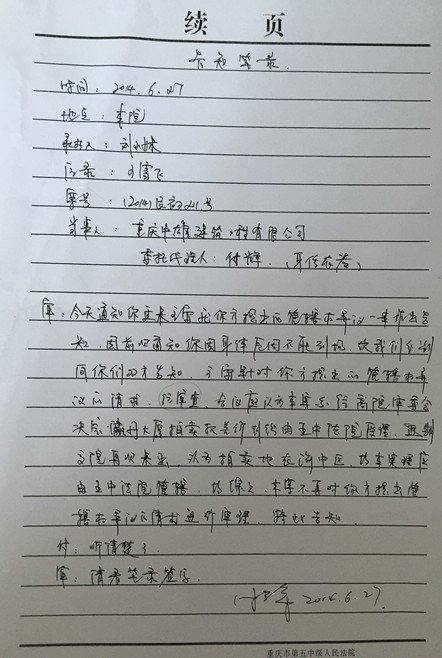 续 页
告知笔录.
时间: 2014.6.27
地点: 本院
承办人: 刘
记录: 刘雪飞
案号: (2014)民初 号
当事人: 重庆中雄建筑工程有限公司
委托代理人: 付辉. (身份在卷)
审: 今天通知你主要来 就你方提出的管辖权异议一事作出告
知. 因前次通知你因身体原因不能到场. 故我们分别
向你们双方告知. 针对你方提出的管辖权异
议的请求. 经审查, 合议庭认为本案系经高院审委会
决定 大厦拍卖 系列纠纷由五中法院管理.
法院再次 出. 认为拍卖地在渝中区. 故本案理应
由五中法院管辖. 故综上. 本案不再对你方提出管
辖权异议的请求进行审理. 特此告知.
付: 听清楚了.
审: 请看笔录签字.
付辉 2014.6.27.
重庆市第五中级人民法院